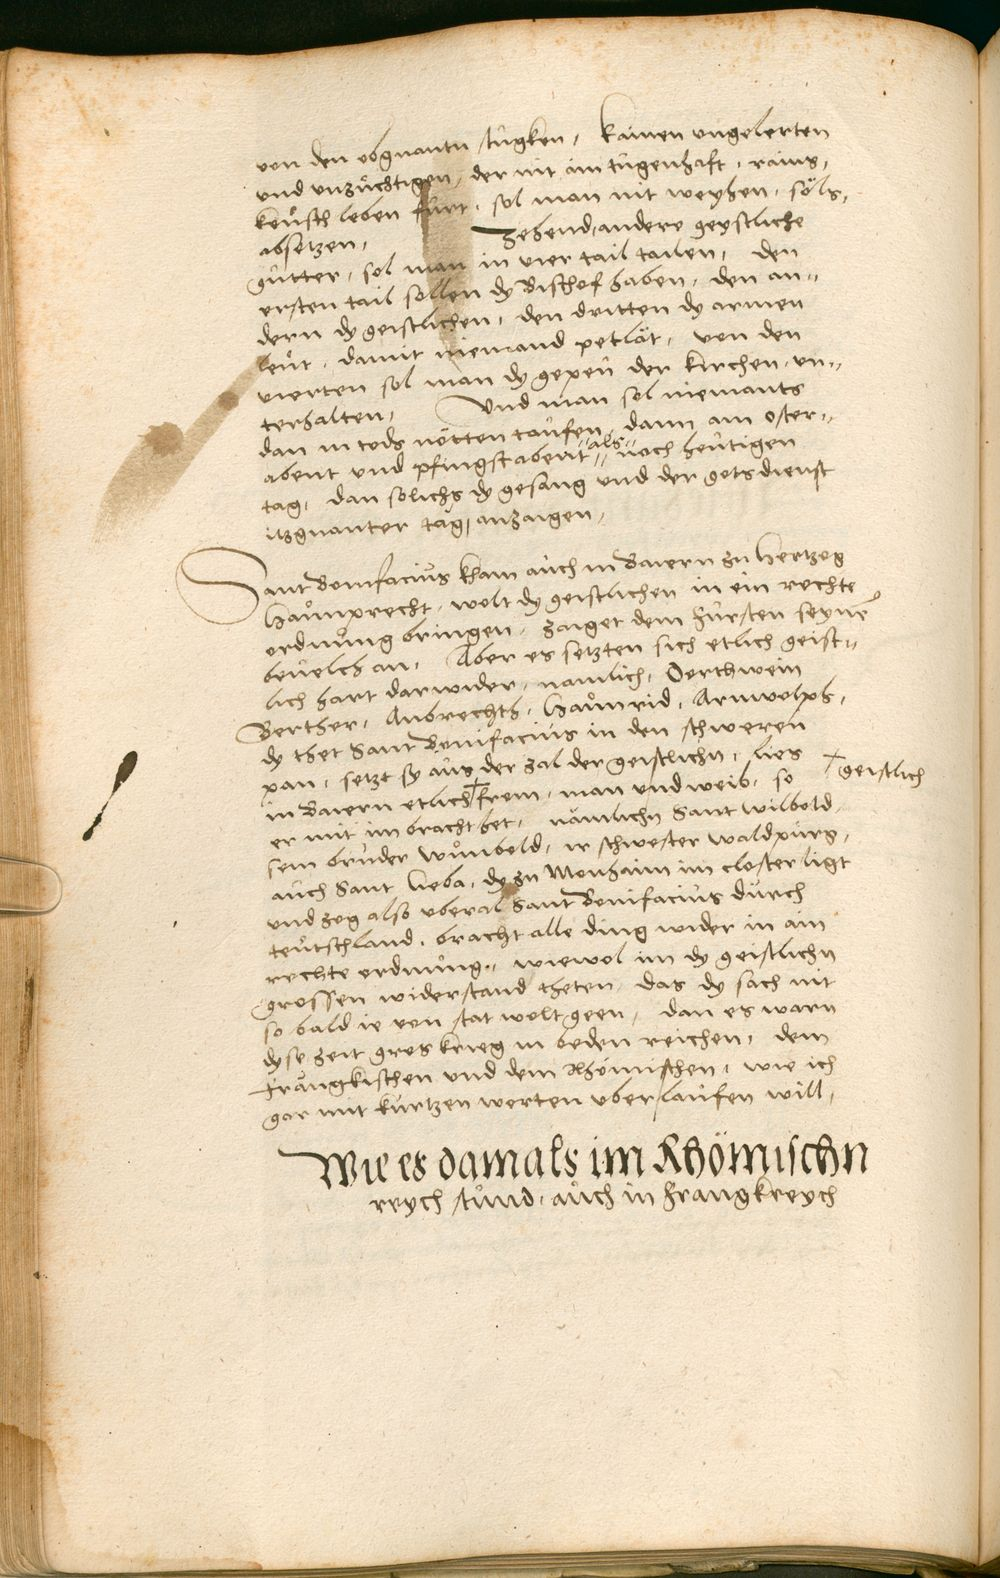 von den obgnantn stugken, kainen ungelerten
und unzüchtigen, der nit ain tugenhaft, rains,
keüsch leben fürt, sol man nit weyhen, söls,
absetzen, Zehend, andere geystliche
gütter, sol man in vier tail tailen, den
ersten tail sollen dy Bischof haben, den an„
dern dy geistlichen, den dritten dy armen
leüt, damit niemand petlät, von den
vierten sol man dy gepeu der kirchen un„
terhalten, Und man sol niemants
dan in tods nötten taufen, dann am oster„
abent und pfingstabent „als„ noch heutigen
tag, dan solichs dy gesang und der gotsdienst
itzgnanter tag, anzaigen,
Sant Bonifacius kham auch in Baiern zu Hertzog
Haunprecht, wolt dy geistlichen in ein rechte
ordnung bringen, zaiget dem Fürsten seynen
bevelch an, Aber es setzten sich etlich geist„
lich hart darwider, namlich, Oerthwein
Berther, Anbrechth, Haunrid, Arnwolph,
dy thet Sant Bonifacius in den schweren
pan, setzt sy aus der zal der geistlichn, lies
in Baiern etlich + from, man und weib, so + geistlich
er mit im bracht het, nämlichn Sant Wilbold
sein bruder Wunbold, ir schwester Waldpurg,
auch Sant Lieba, dy zu Monhaim im closter ligt
und zog also uberal Sant Bonifacius durch
teutschland, bracht alle ding wider in ain
rechte ordnung„ wiewol im dy geistlichn
grossen widerstand theten, das dy sach nit
so bald ie von stat wolt geen, dan es warn
dyse zeit gros krieg in beden reichen, dem
Frängkischen und dem Rhömischen, wie ich
gar mit kurtzen worten uberlaufen will,
Wie es damals im Rhömischn
reych stund, auch in Frangkreych